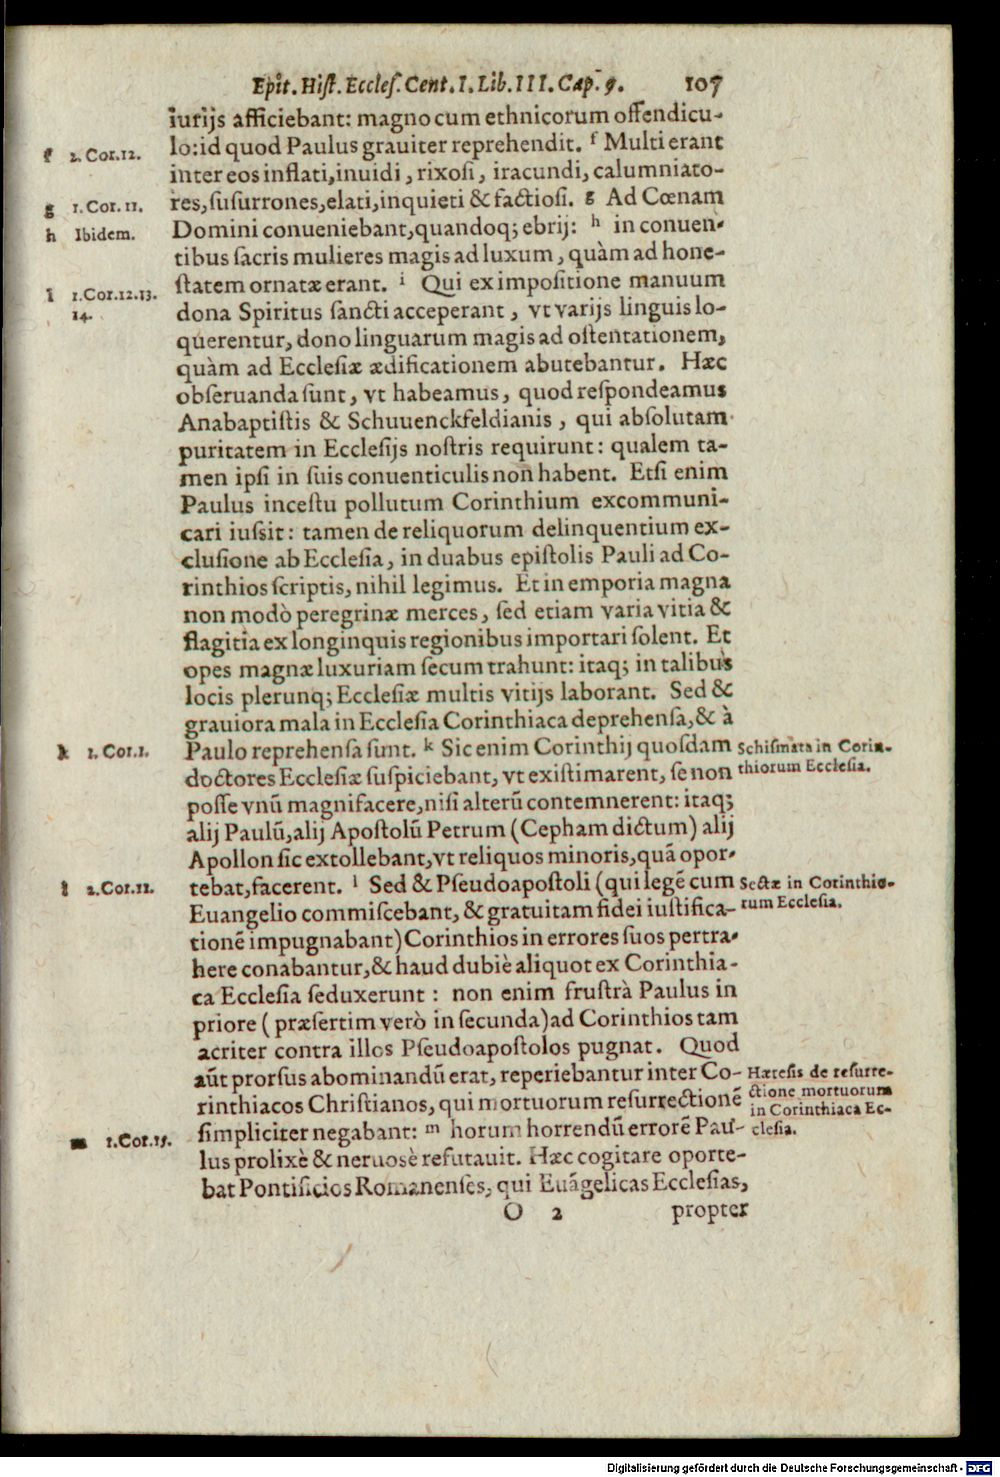 Epit. Hiſt. Eccleſ. Cent. I. Lib. III. Cap. 9. 107
iurijs afficiebant: magno cum ethnicorum offendicu-
f 2. Cor. 12.
lo: id quod Paulus grauiter reprehendit. f Multi erant
inter eos inflati, inuidi, rixoſi, iracundi, calumniato-
g 1. Cor. 11.
res, ſuſurrones, elati, inquieti & factioſi. g Ad Cœnam
h Ibidem.
Domini conueniebant, quandoq; ebrij: h in conuen-
tibus ſacris mulieres magis ad luxum, quàm ad hone-
i 1. Cor. 12. 13.
14.
ſtatem ornatæ erant. i Qui ex impoſitione manuum
dona Spiritus ſancti acceperant, vt varijs linguis lo-
querentur, dono linguarum magis ad oſtentationem,
quàm ad Eccleſiæ ædificationem abutebantur. Hæc
obſeruanda ſunt, vt habeamus, quod reſpondeamus
Anabaptiſtis & Schuuenckfeldianis, qui abſolutam
puritatem in Eccleſijs noſtris requirunt: qualem ta-
men ipſi in ſuis conuenticulis non habent. Etſi enim
Paulus inceſtu pollutum Corinthium excommuni-
cari iuſsit: tamen de reliquorum delinquentium ex-
cluſione ab Eccleſia, in duabus epiſtolis Pauli ad Co-
rinthios ſcriptis, nihil legimus. Et in emporia magna
non modò peregrinæ merces, ſed etiam varia vitia &
flagitia ex longinquis regionibus importari ſolent. Et
opes magnæ luxuriam ſecum trahunt: itaq; in talibus
locis plerunq; Eccleſiæ multis vitijs laborant. Sed &
grauiora mala in Eccleſia Corinthiaca deprehenſa, & à
k 1. Cor. 1.
Paulo reprehenſa ſunt. k Sic enim Corinthij quoſdam
Schiſmata in Corin-
thiorum Eccleſia.
doctores Eccleſiæ ſuſpiciebant, vt exiſtimarent, ſe non
poſſe vnũ magnifacere, niſi alterũ contemnerent: itaq;
alij Paulũ, alij Apoſtolũ Petrum (Cepham dictum) alij
Apollon ſic extollebant, vt reliquos minoris, quã opor-
l 2. Cor. 11.
tebat, facerent. l Sed & Pſeudoapoſtoli (qui legẽ cum
Sectæ in Corinthio-
rum Eccleſia.
Euangelio commiſcebant, & gratuitam fidei iuſtifica-
tionẽ impugnabant) Corinthios in errores ſuos pertra-
here conabantur, & haud dubiè aliquot ex Corinthia-
ca Eccleſia ſeduxerunt: non enim fruſtrà Paulus in
priore (præſertim verò in ſecunda) ad Corinthios tam
acriter contra illos Pſeudoapoſtolos pugnat. Quod
aũt prorſus abominandũ erat, reperiebantur inter Co-
Hæreſis de reſurre-
ctione mortuorum
in Corinthiaca Ec-
cleſia.
rinthiacos Chriſtianos, qui mortuorum reſurrectionẽ
m 1. Cor. 15.
ſimpliciter negabant: m horum horrendũ errorẽ Pau-
lus prolixè & neruosè refutauit. Hæc cogitare oporte-
bat Pontificios Romanenſes, qui Euãgelicas Eccleſias,
O 2 propter
Digitalisierung gefördert durch die Deutsche Forschungsgemeinschaft - DFG